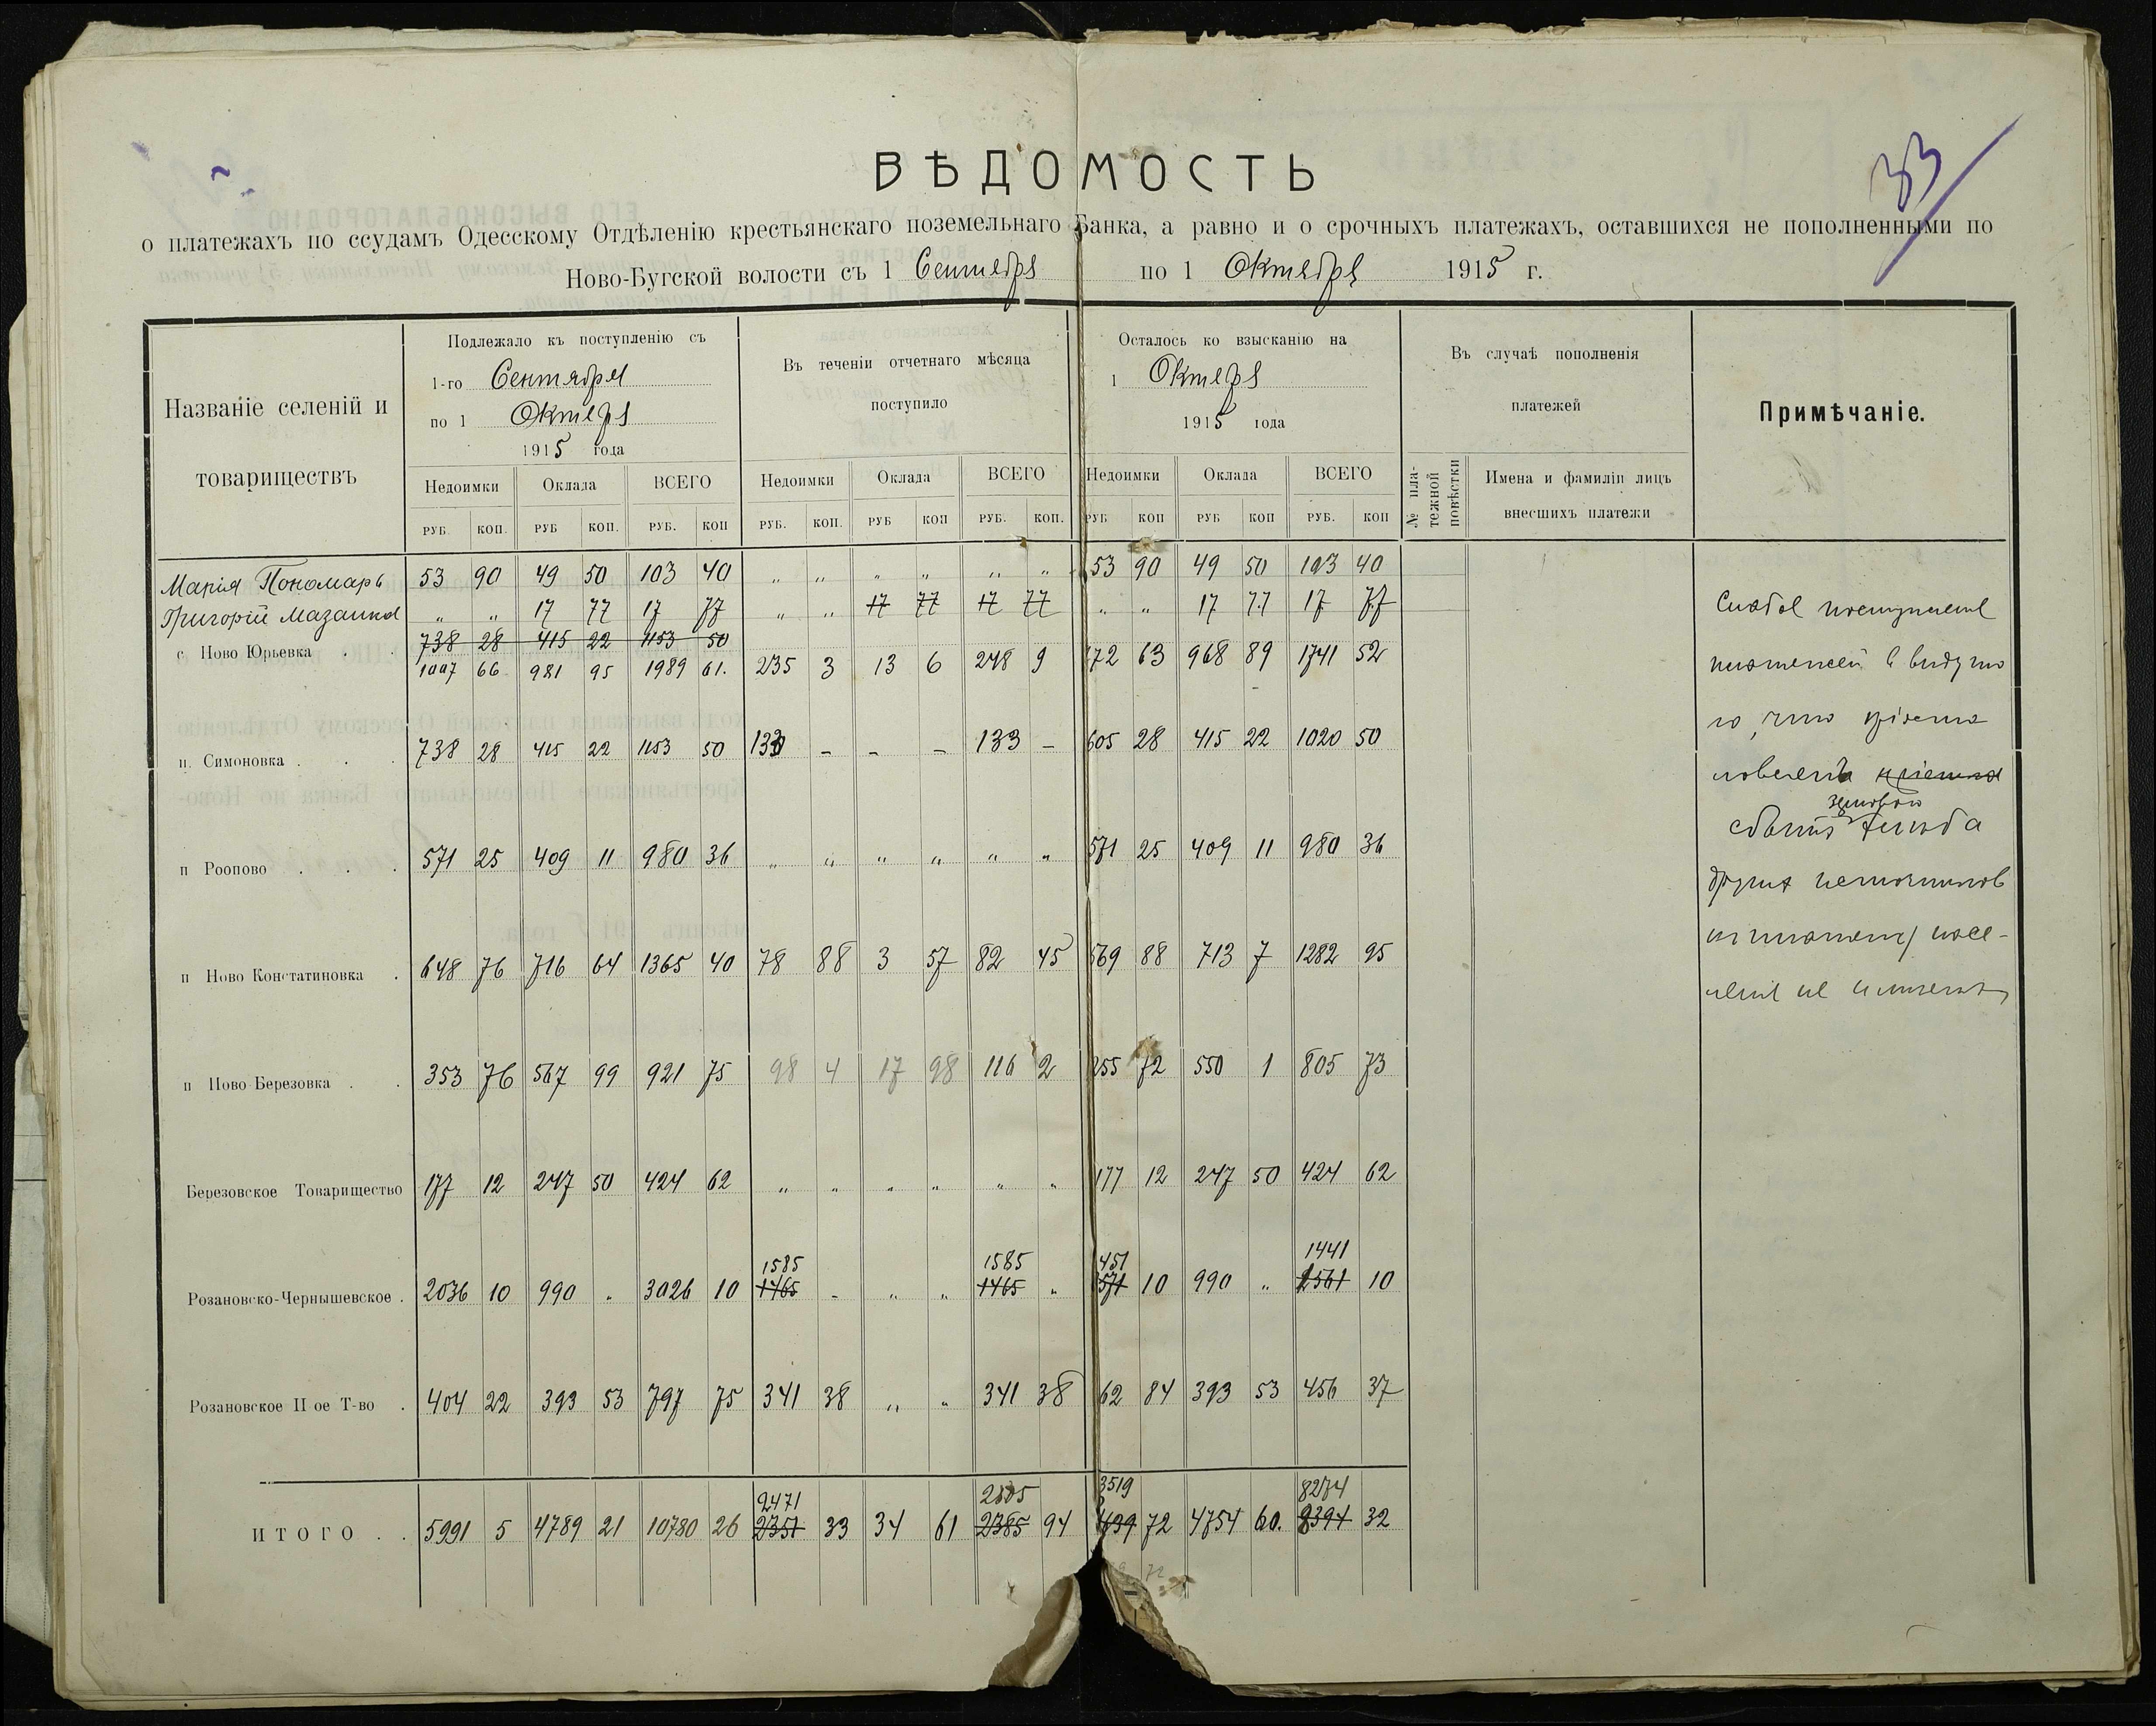 33
ВѢДОМОСТЬ
о платежахъ по ссудамъ Одесскому Отдѣленію крестьянскаго поземельнаго Банка, а равно и о срочныхъ платежахъ, оставшихся не пополненными по
Ново-Бугской волости съ 1 Сентября по 1 Октября 1915 г.
Названіе селеній и
товариществъ
Подлежало къ поступленію съ
1-го Сентября
по 1 Октября
1915 года
Въ теченіи отчетнаго мѣсяца
поступило
Осталось ко взысканію на
1 Октября
1915 года
Въ случаѣ пополненія
платежей
Примѣчаніе.
Недоимки Оклада ВСЕГО Недоимки Оклада ВСЕГО Недоимки Оклада ВСЕГО
№ пла-
тежной
повѣстки
Имена и фамиліи лицъ
внесшихъ платежи
РУБ. КОП. РУБ КОП. РУБ. КОП РУБ. КОП. РУБ КОП РУБ. КОП. РУБ КОП РУБ КОП РУБ. КОП
Марія Пономарь 53 90 49 50 103 40 „ „ „ „ „ „ 53 90 49 50 103 40
Григорій Мазанко „ „ 17 77 17 77 „ „ 17 77 17 77 „ „ 17 77 17 77
738 28 415 22 1153 50
с Ново Юрьевка . . 1007 66 981 95 1989 61. 235 3 13 6 248 9 772 63 968 89 1741 52
п. Симоновка . . . 738 28 415 22 1153 50 133 – – – 133 – 605 28 415 22 1020 50
п Роопово . . . 571 25 409 11 980 36 „ „ „ „ „ „ 571 25 409 11 980 36
п Ново Констатиновка . 648 76 716 64 1365 40 78 88 3 57 82 45 569 88 713 7 1282 95
п Ново Березовка . . 353 76 567 99 921 75 98 4 17 98 116 2 255 72 550 1 805 73
Березовское Товарищество 177 12 247 50 424 62 „ „ „ „ „ „ 177 12 247 50 424 62
1585 1585 451 1441
Розановско-Чернышевское . 2036 10 990 „ 3026 10 1465 „ „ „ 1465 „ 571 10 990 „ 1561 10
Розановское II ое Т-во . 404 22 393 53 797 75 341 38 „ „ 341 38 62 84 393 53 456 37
2471 2505 3519 8274
ИТОГО . . 5991 5 4789 21 10780 26 2351 33 34 61 2385 94 72 4754 60. 8394 32
Слабое поступленіе
платежей в виду то
го, что
земового
других источников
к платежу насе-
леніе не имѣетъ